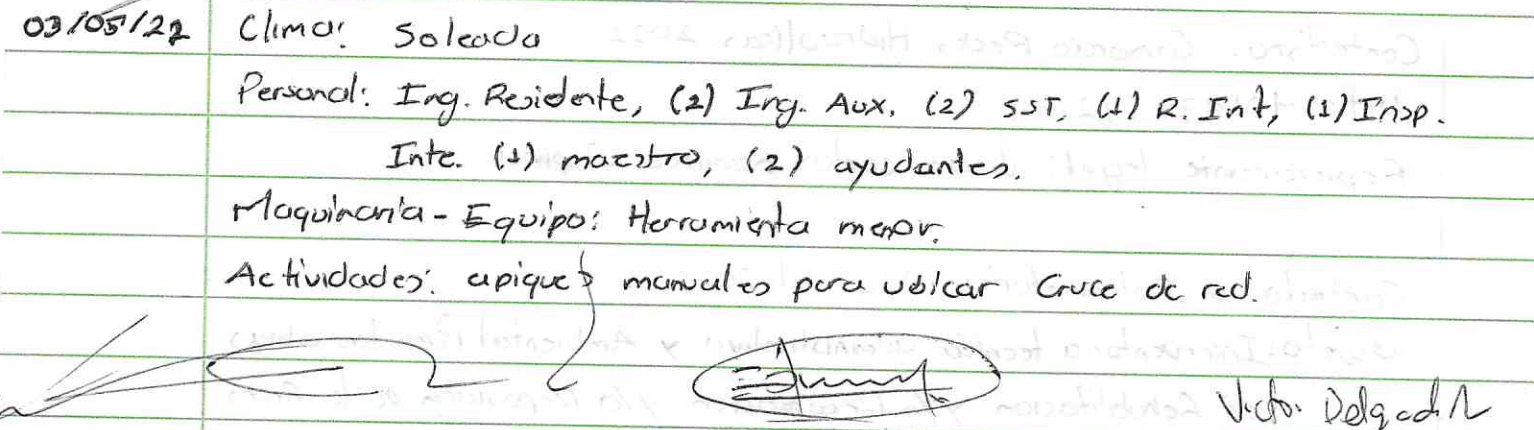 03/05/22 Clima: Soleado
Personal: Ing. Residente, (2) Ing. Aux, (2) SST, (1) R. Int, (1) Insp.
Inte. (1) maestro, (2) ayudantes.
Maquinaria - Equipo: Herramienta menor.
Actividades: apiques manuales para ubicar Cruce de red.
Victor Delgad